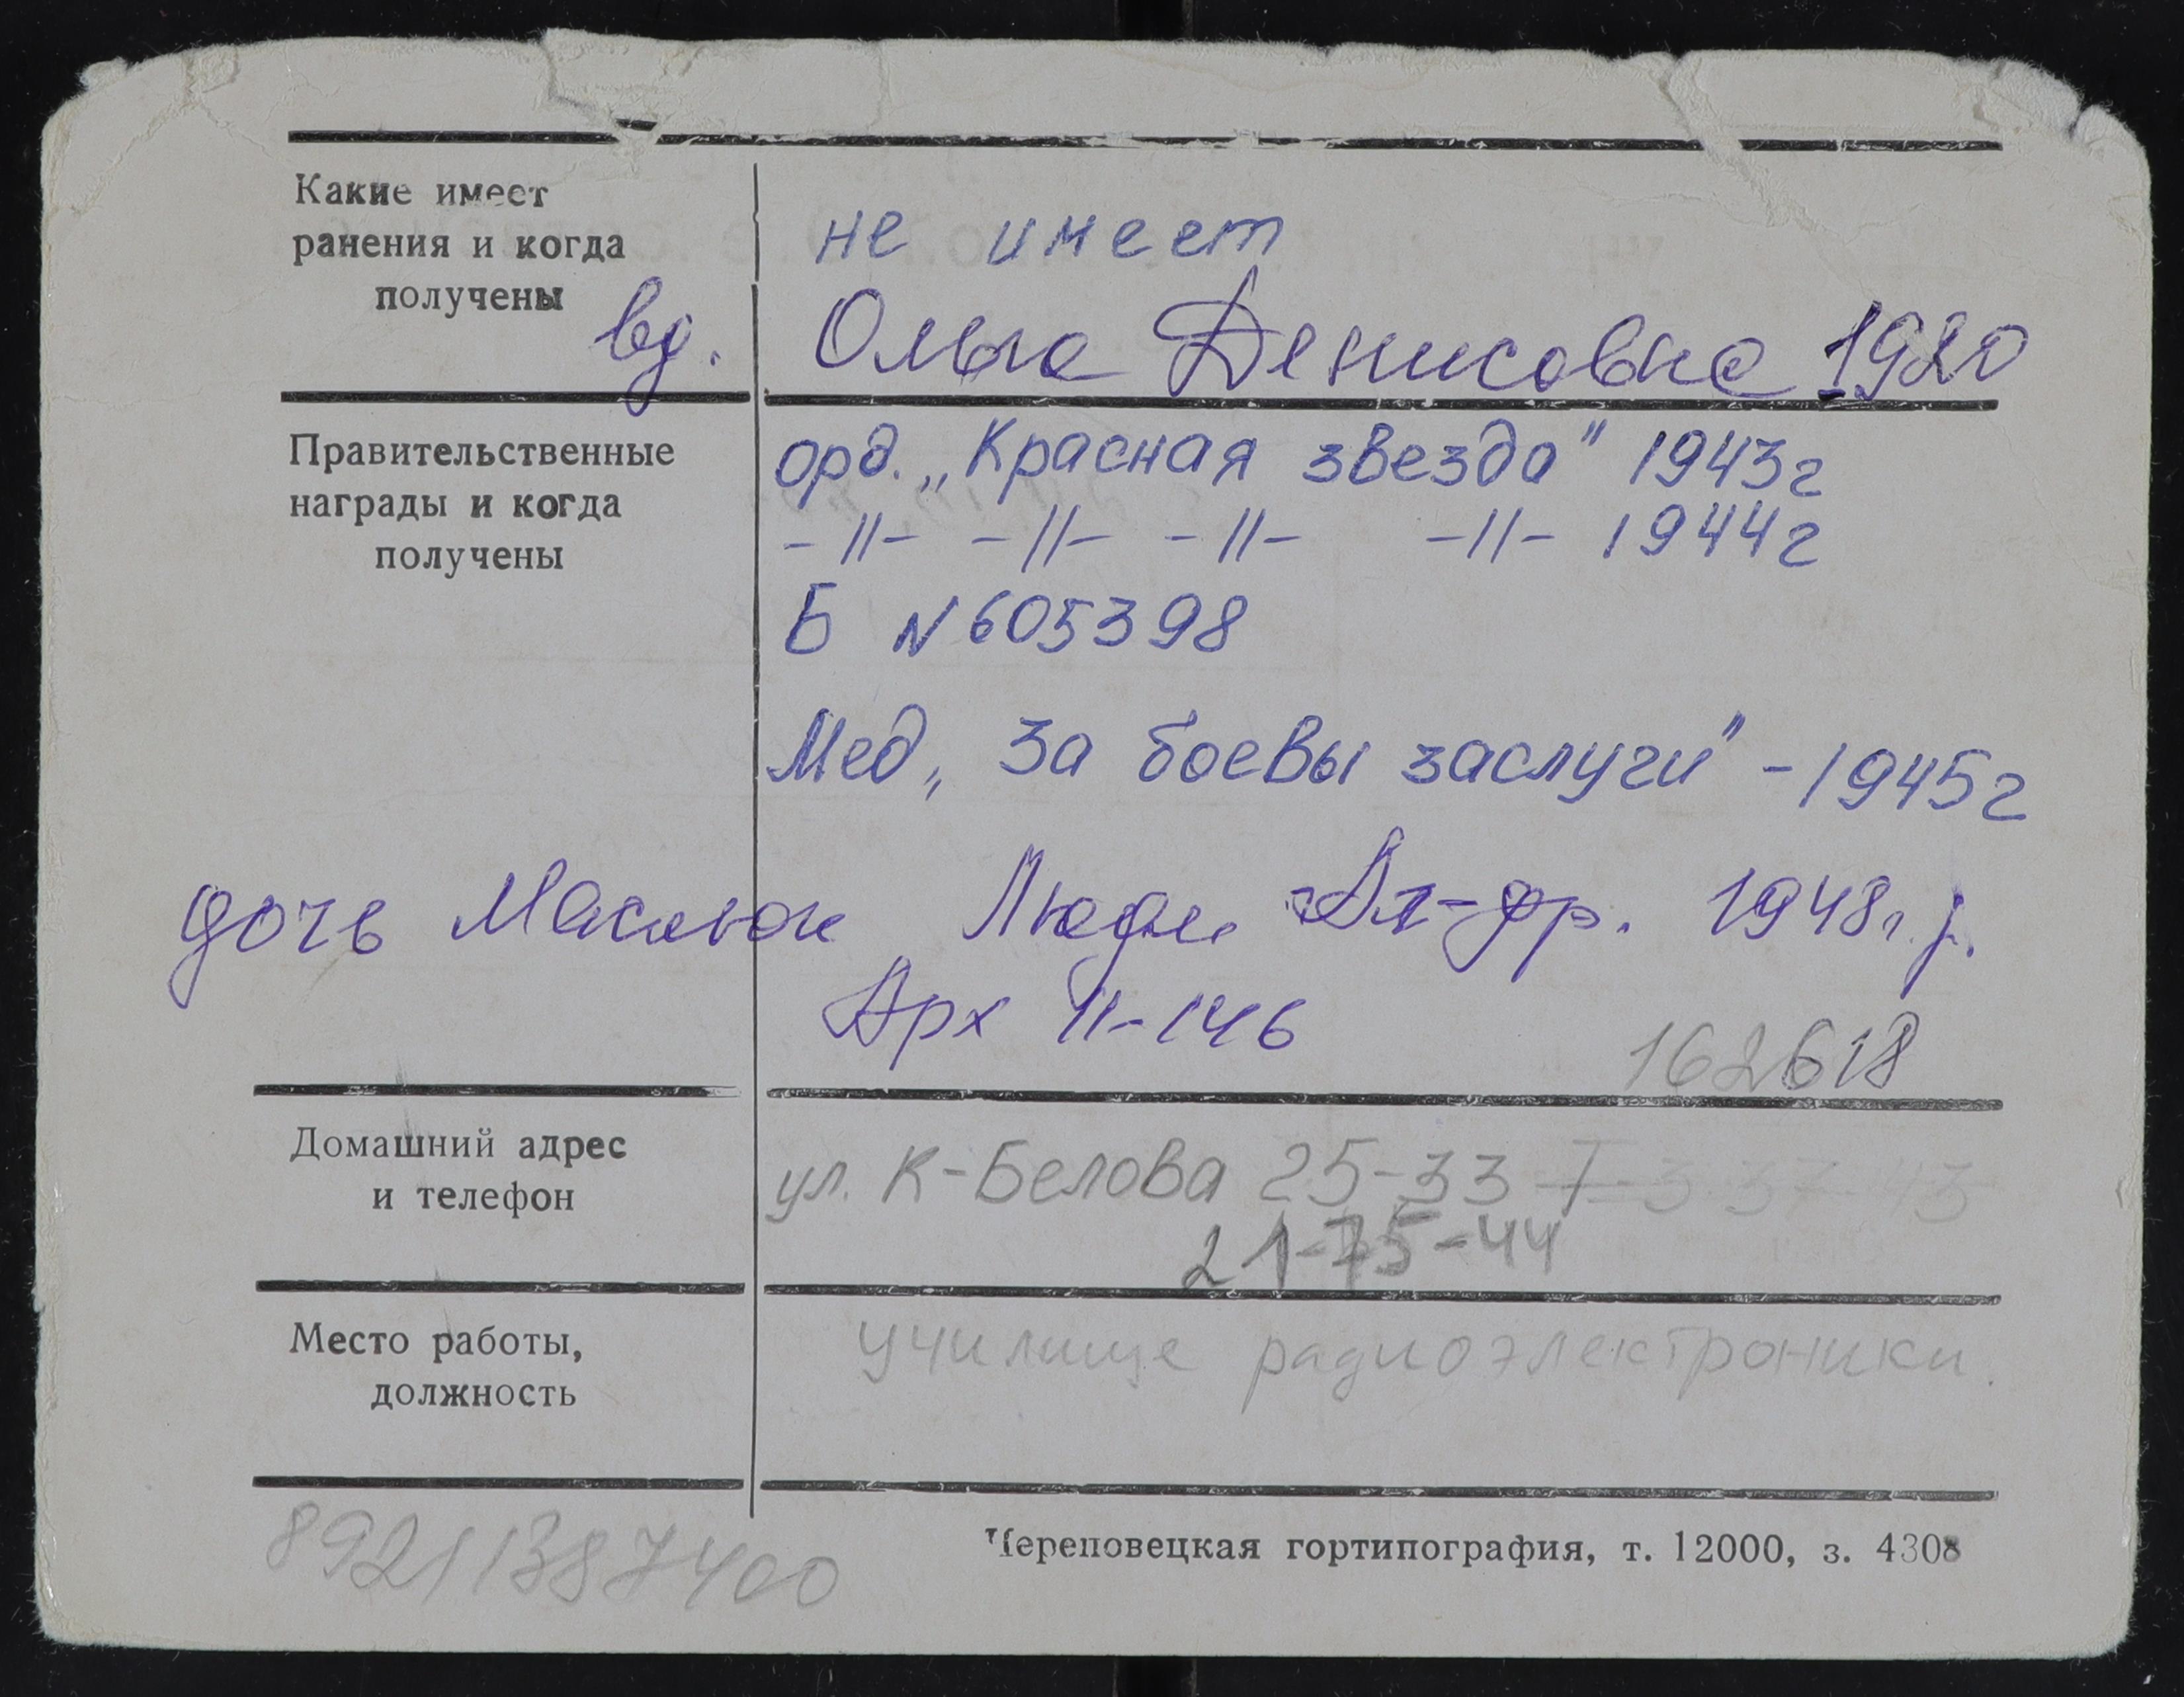 Какие имеет
ранения и когда
получены
не имеет
вд. Ольга Денисовна 1920
Правительственные
награды и когда
получены
орд. „Красная звезда" 1943г
-//- -//- -//- -//- 1944г
Б N 605398
Мед„ За боевы заслуги" - 1945г
дочь Людм Ал-др. 1948г.р.
Арх 11-146
162618
Домашний адрес
и телефон
ул. К-Белова 25-33
21-75-44
Место работы,
должность
училище радиоэлектроники.
89211387400
Череповецкая гортипография, т. 12000, з. 4308